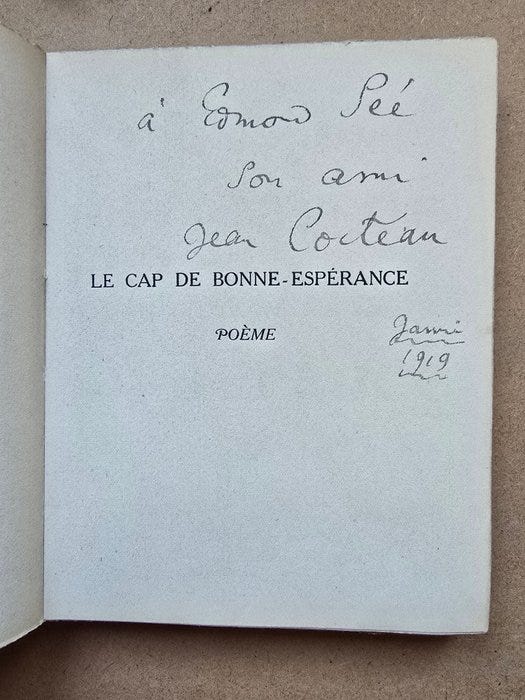 à Edmond Séé
son ami
Jean Cocteau
LE CAP DE BONNE-ESPÉRANCE
POÈME
Janvi
1919